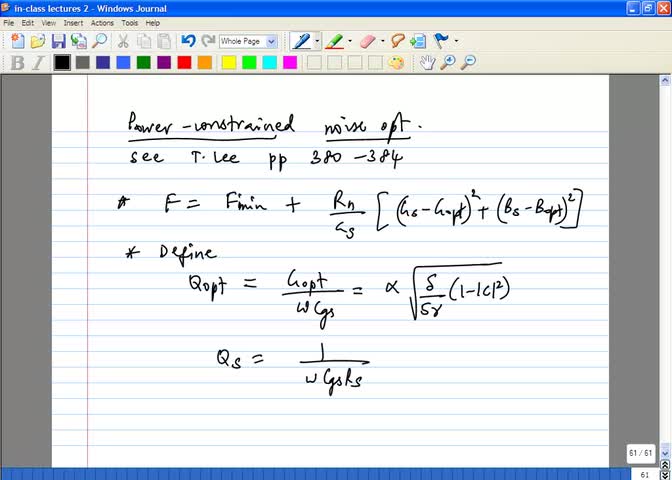 in-class lectures 2 - Windows Journal
File Edit View Insert Actions Tools Help
Whole Page
B I
Power-constrained noise opt.
see T. Lee pp 380-384
* F = Fmin + Rn/Gs [(Gs-Gopt)² + (Bs-Bopt)²]
* Define
Qopt = Gopt/ωCgs = α √(δ/5γ (1-|c|²))
Qs = 1/ωCgsRs
61 / 61
61